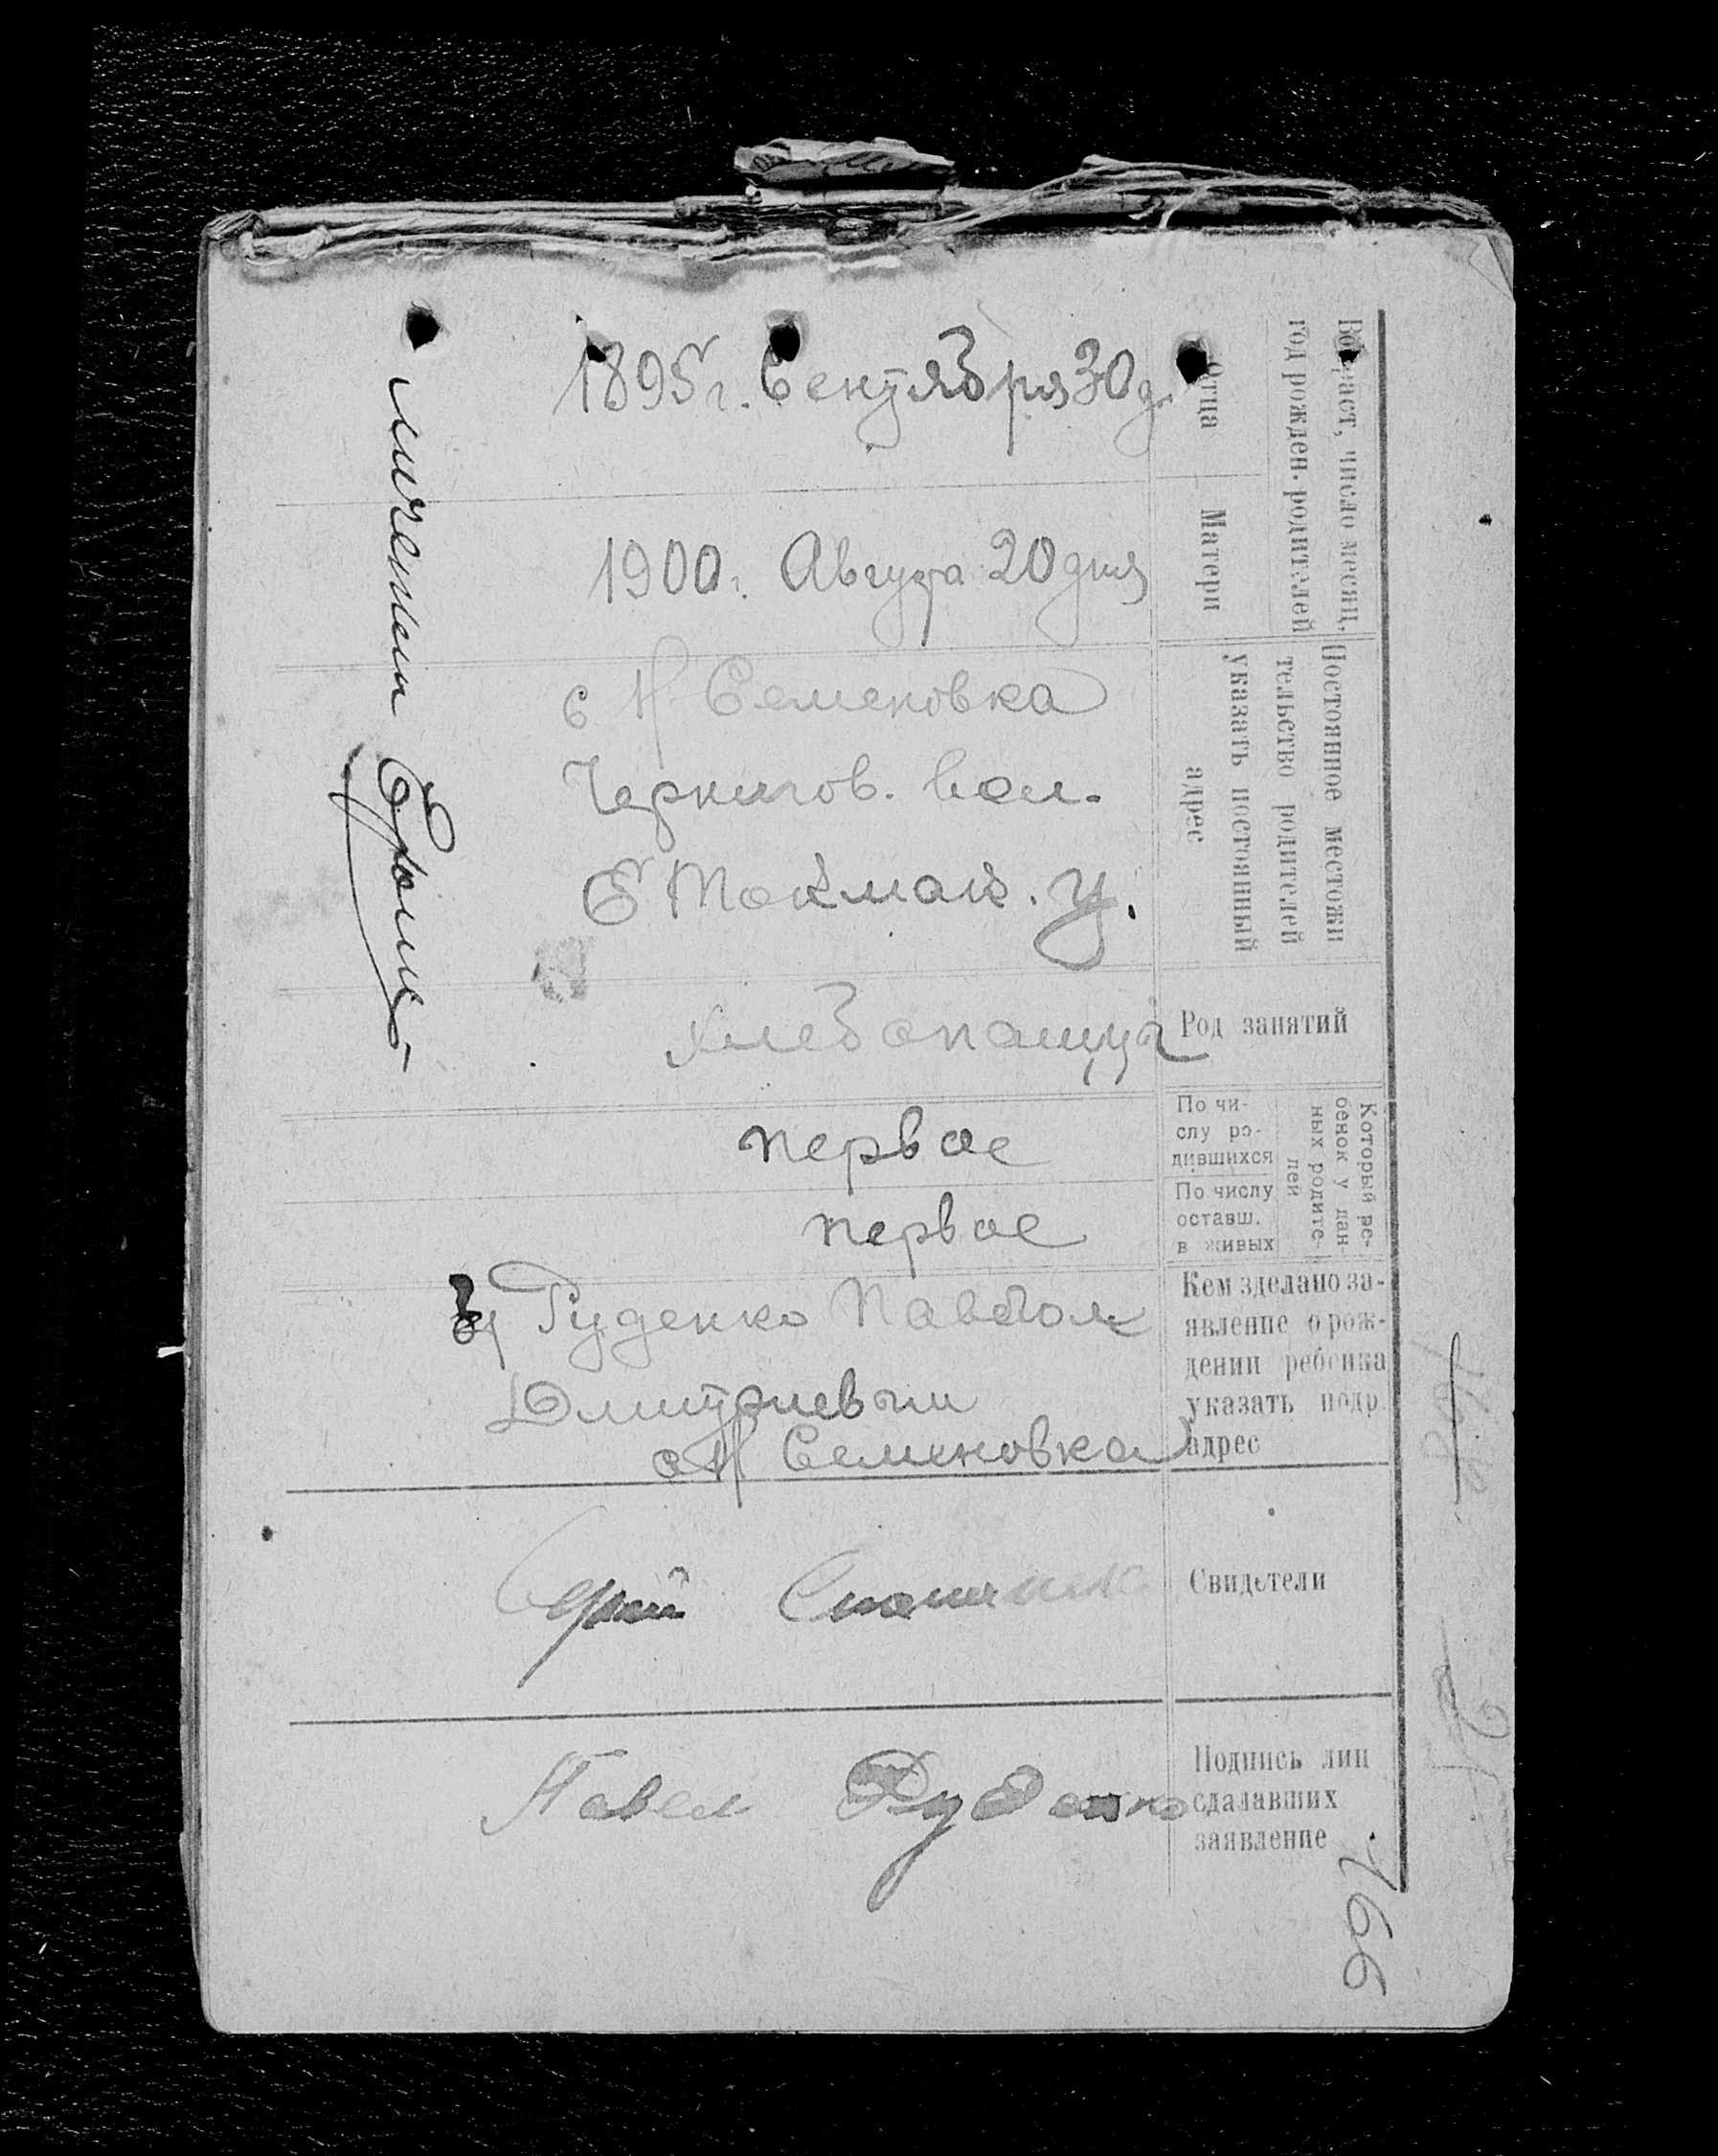 Возраст, число месяц,
год рожден. родителей
Отца
1895 г. Сентября 30 д.
Матери
1900 г. Августа 20 дня
Постоянное местожи
тельство родителей
указать постоянный
адрес
с Н Семеновка
Чернигов. вол.
Б Токмак. у.
Род занятий
хлебопашца
Который ре-
бенок у дан-
ных родите-
лей
По чи-
слу ро-
дившихся
первое
По числу
оставш.
в живых
первое
Кем зделано за-
явление о рож-
дении ребенка
указать подр.
адрес
Руденко Павлом
Дмитриевым
с Н Семеновка
Свидетели
Подпись лиц
сдалавших
заявление
Павел Руденко
166